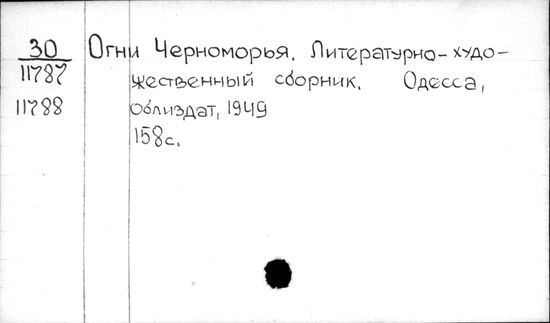 30 Огни Черноморья. Литературно-худо-
11787 жественный сборник. Одесса,
11788 Облиздат, 1949
158с.